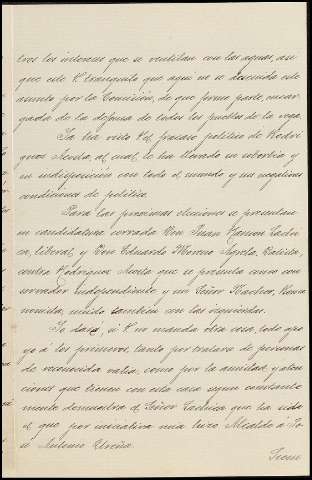 tros los intereses que se ventilan con las aguas, asi
que este V. tranquilo que aqui no se descuida este
asunto por la Comisión, de que formo parte, encar-
gada de la defensa de todos los pueblos de la vega.
Ya ha visto Vd. fracaso político de Rodri-
guez Acosta, al cual, le ha llevado su soberbia y
su indisposición con todo el mundo y sus negativas
condiciones de político.
Para las proximas elecciones se presentan
en candidatura cerrada Don Juan Ramon La
ca, liberal, y Don Eduardo Moreno Agrela,
contra Rodriguez Acosta que se presenta como con-
servador independiente y un Señor Pareja,
mista, unido tambien con las izquierdas.
Yo daré, si V. no manda otra cosa, todo apo-
yo á los primeros, tanto por tratarse de personas
de reconocida valia, como por la amistad y aten-
ciones que tienen con esta casa segun constante-
mente demuestra el Señor que ha sido
el que por iniciativa mia hizo Alcalde a Jo-
sé Antonio Ureña.